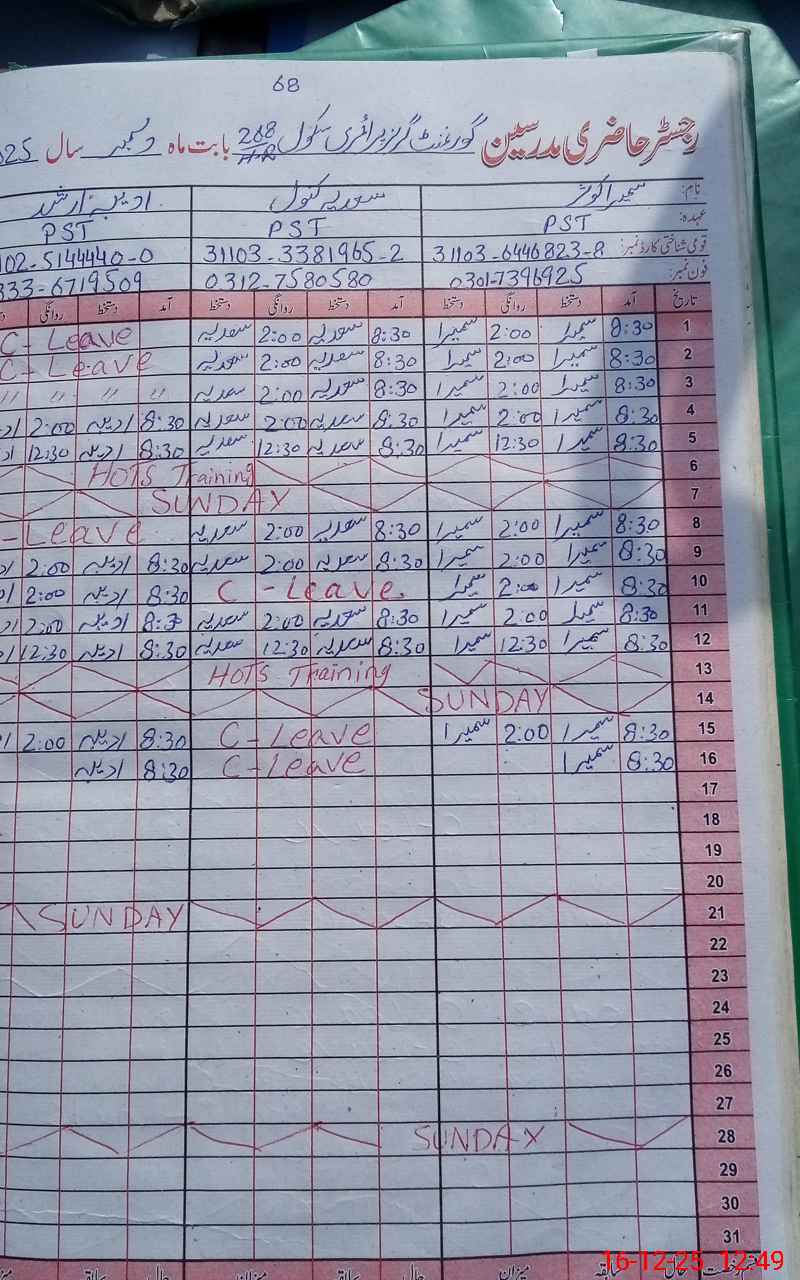 68
رجسٹر حاضری مدرسین گورنمنٹ گرلز پرائمری سکول 268/HR بابت ماہ دسمبر سال 025
نام: سمیرا کوثر سعدیہ کنول ادیبہ ارشد
عہدہ: PST PST PST
قومی شناختی کارڈ نمبر: 31103-6446823-8 31103-3381965-2 102-5144440-0
فون نمبر: 0301-7396925 0312-7580580 333-6719509
تاریخ آمد دستخط روانگی دستخط آمد دستخط روانگی دستخط آمد دستخط روانگی
1 8:30 سمیرا 2:00 سمیرا 8:30 سعدیہ 2:00 سعدیہ C- Leave
2 8:30 سمیرا 2:00 سمیرا 8:30 سعدیہ 2:00 سعدیہ C- Leave
3 8:30 سمیرا 2:00 سمیرا 8:30 سعدیہ 2:00 سعدیہ 〃 〃 〃 〃
4 8:30 سمیرا 2:00 سمیرا 8:30 سعدیہ 2:00 سعدیہ 8:30 ادیبہ 2:00
5 8:30 سمیرا 12:30 سمیرا 8:30 سعدیہ 12:30 سعدیہ 8:30 ادیبہ 12:30
6 HOTS Training
7 SUNDAY
8 8:30 سمیرا 2:00 سمیرا 8:30 سعدیہ 2:00 سعدیہ -Leave
9 8:30 سمیرا 2:00 سمیرا 8:30 سعدیہ 2:00 سعدیہ 8:30 ادیبہ 2:00
10 8:30 سمیرا 2:00 سمیرا C - Leave 8:30 ادیبہ 2:00
11 8:30 سمیرا 2:00 سمیرا 8:30 سعدیہ 2:00 سعدیہ 8:30 ادیبہ 2:00
12 8:30 سمیرا 12:30 سمیرا 8:30 سعدیہ 12:30 سعدیہ 8:30 ادیبہ 12:30
13 HOTS Training
14 SUNDAY
15 8:30 سمیرا 2:00 سمیرا C - Leave 8:30 ادیبہ 2:00
16 8:30 سمیرا C - Leave 8:30 ادیبہ
17
18
19
20
21 SUNDAY
22
23
24
25
26
27
28 SUNDAY
29
30
31
سابقہ میزان
16-12-25 12:49